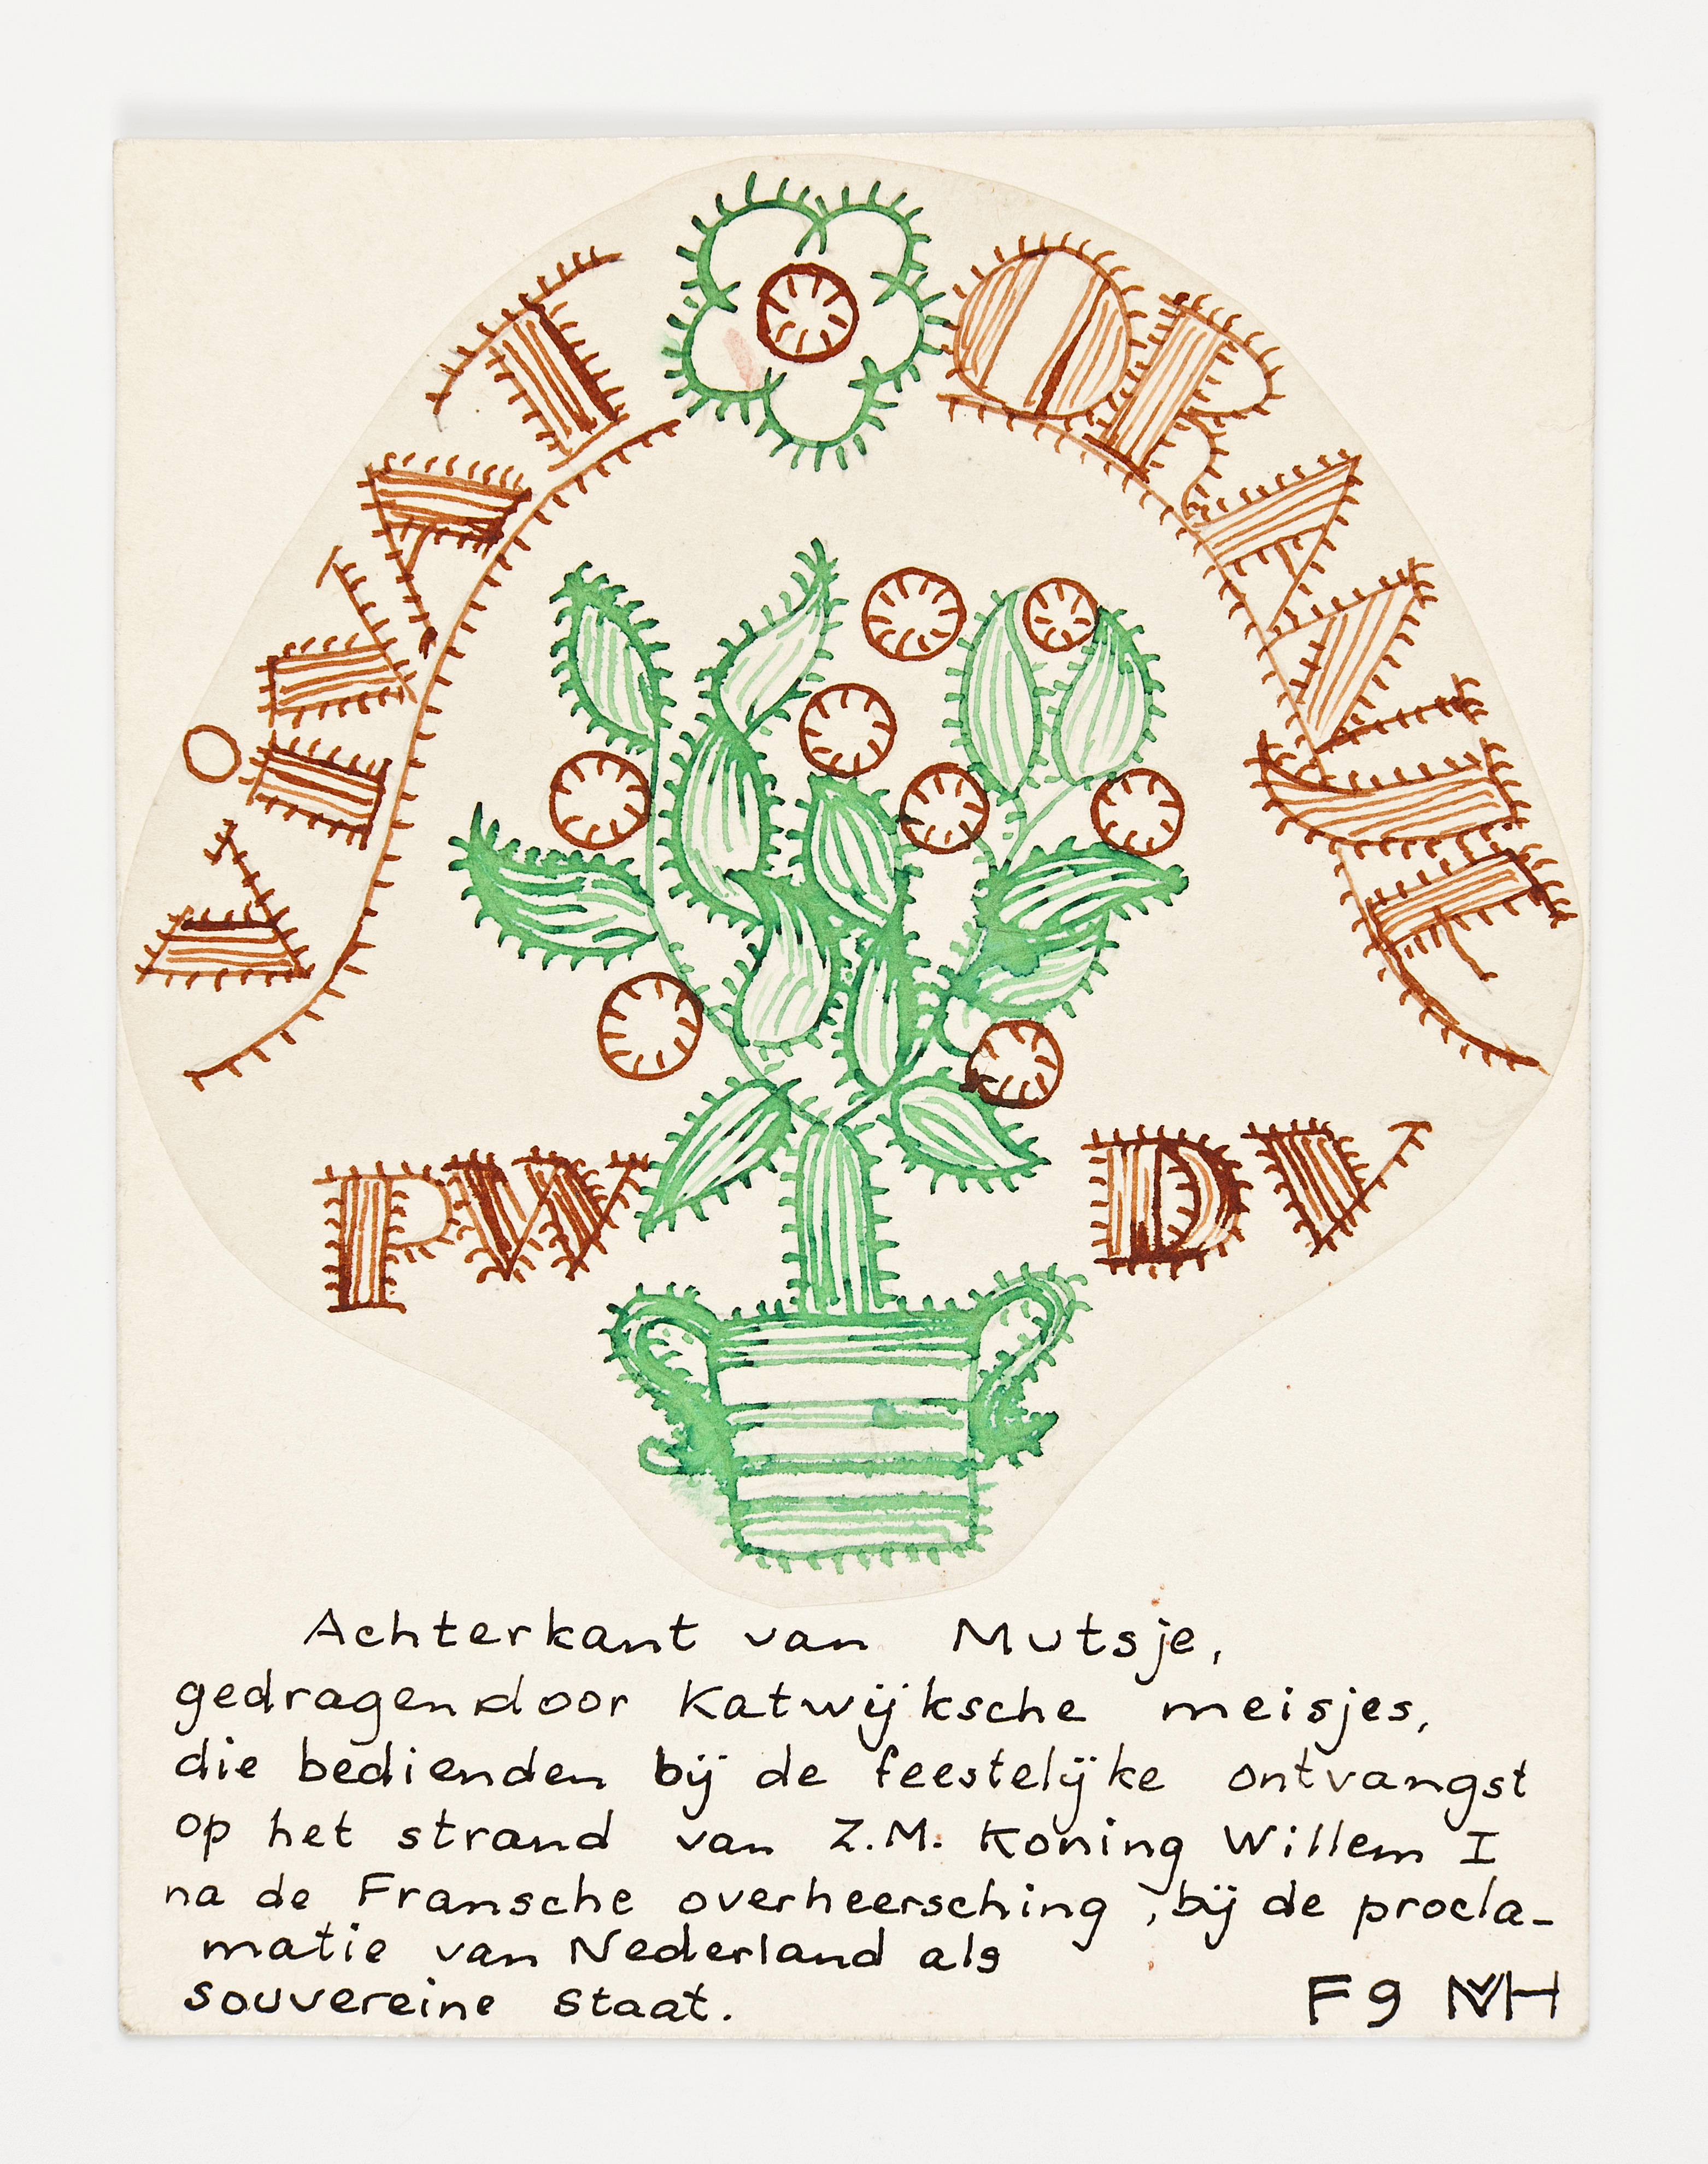 VIVAT ORANJE
PW DV
Achterkant van Mutsje,
gedragen door Katwijksche meisjes,
die bedienden bij de feestelijke ontvangst
op het strand van Z.M. Koning Willem I
na de Fransche overheersching, bij de procla-
matie van Nederland als
souvereine staat.
F9 NVH